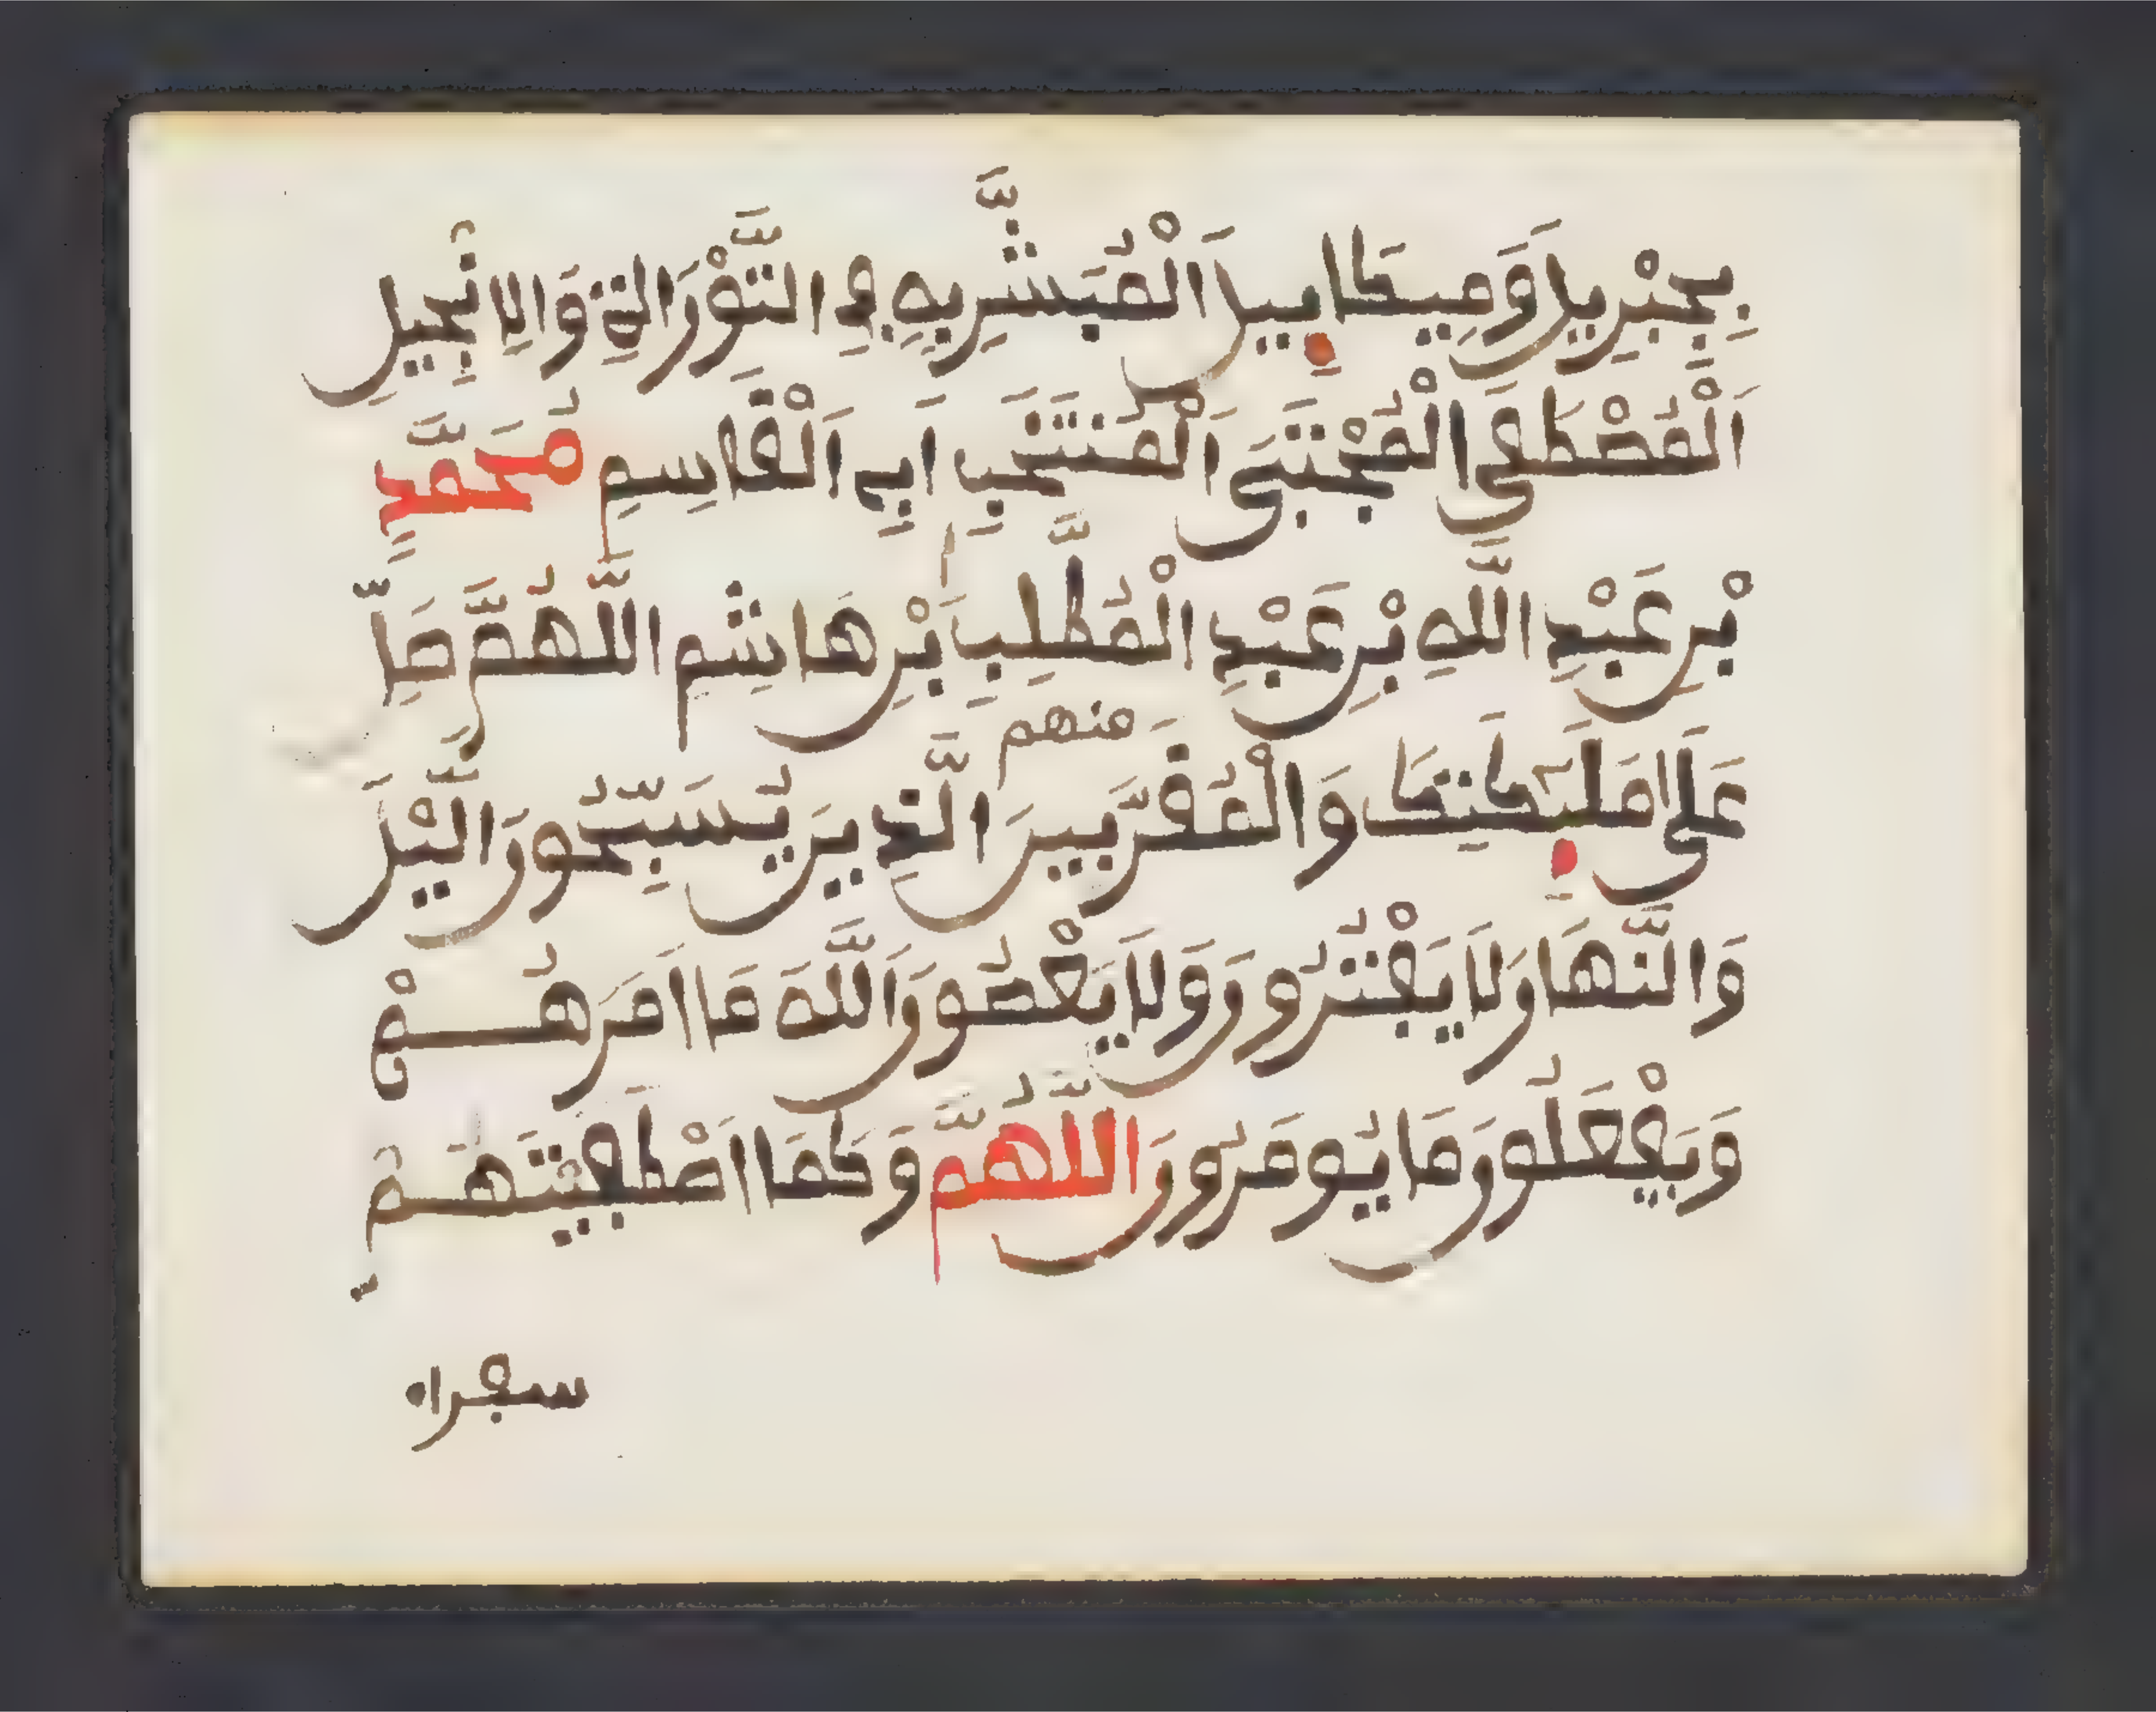 بِجِبْرِيلَ وَمِيكَايِيلَ اَلْمُبَشَّرِ بِهِ فِي التَّوْرَاةِ وَالِانْجِيلِ
اَلْمُصْطَفَى الْمُجْتَبَى اَلْمُنْتَخَبِ اَبِي اَلْقَاسِمِ مُحَمَّدٍ
بْنِ عَبْدِ اللَّهِ بْنِ عَبْدِ الْمُطَّلِبِ بْنِ هَاشِمٍ اللَّهُمَّ صَلِّ
عَلَى مَلَئِكَتِكَ وَالْمُقَرَّبِينَ الَّذِينَ يُسَبِّحُونَ الَّيْلَ
منهم
وَالنَّهَارَ وَلَا يَفْتُرُونَ وَلَا يَعْصُونَ اللَّهَ مَا اَمَرَهُمْ
وَيَفْعَلُونَ مَا يُومَرُونَ اللَّهُمَّ وَكَمَا اَصْطَفَيْتَهُمْ
سفراء